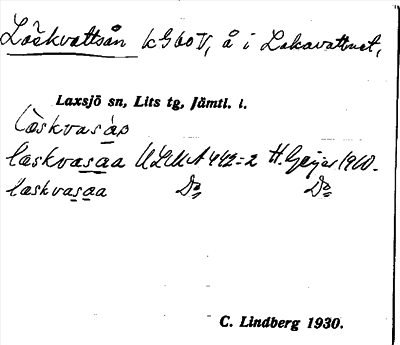 Löskvattsån kG60V, å i Lakavattnet,
Laxsjö sn, Lits tg, Jämtl. l.
læskvasáo
læskvasaa ULMA 442:2 H. Geijer 1900.
læskvasaa Do Do
C. Lindberg 1930.